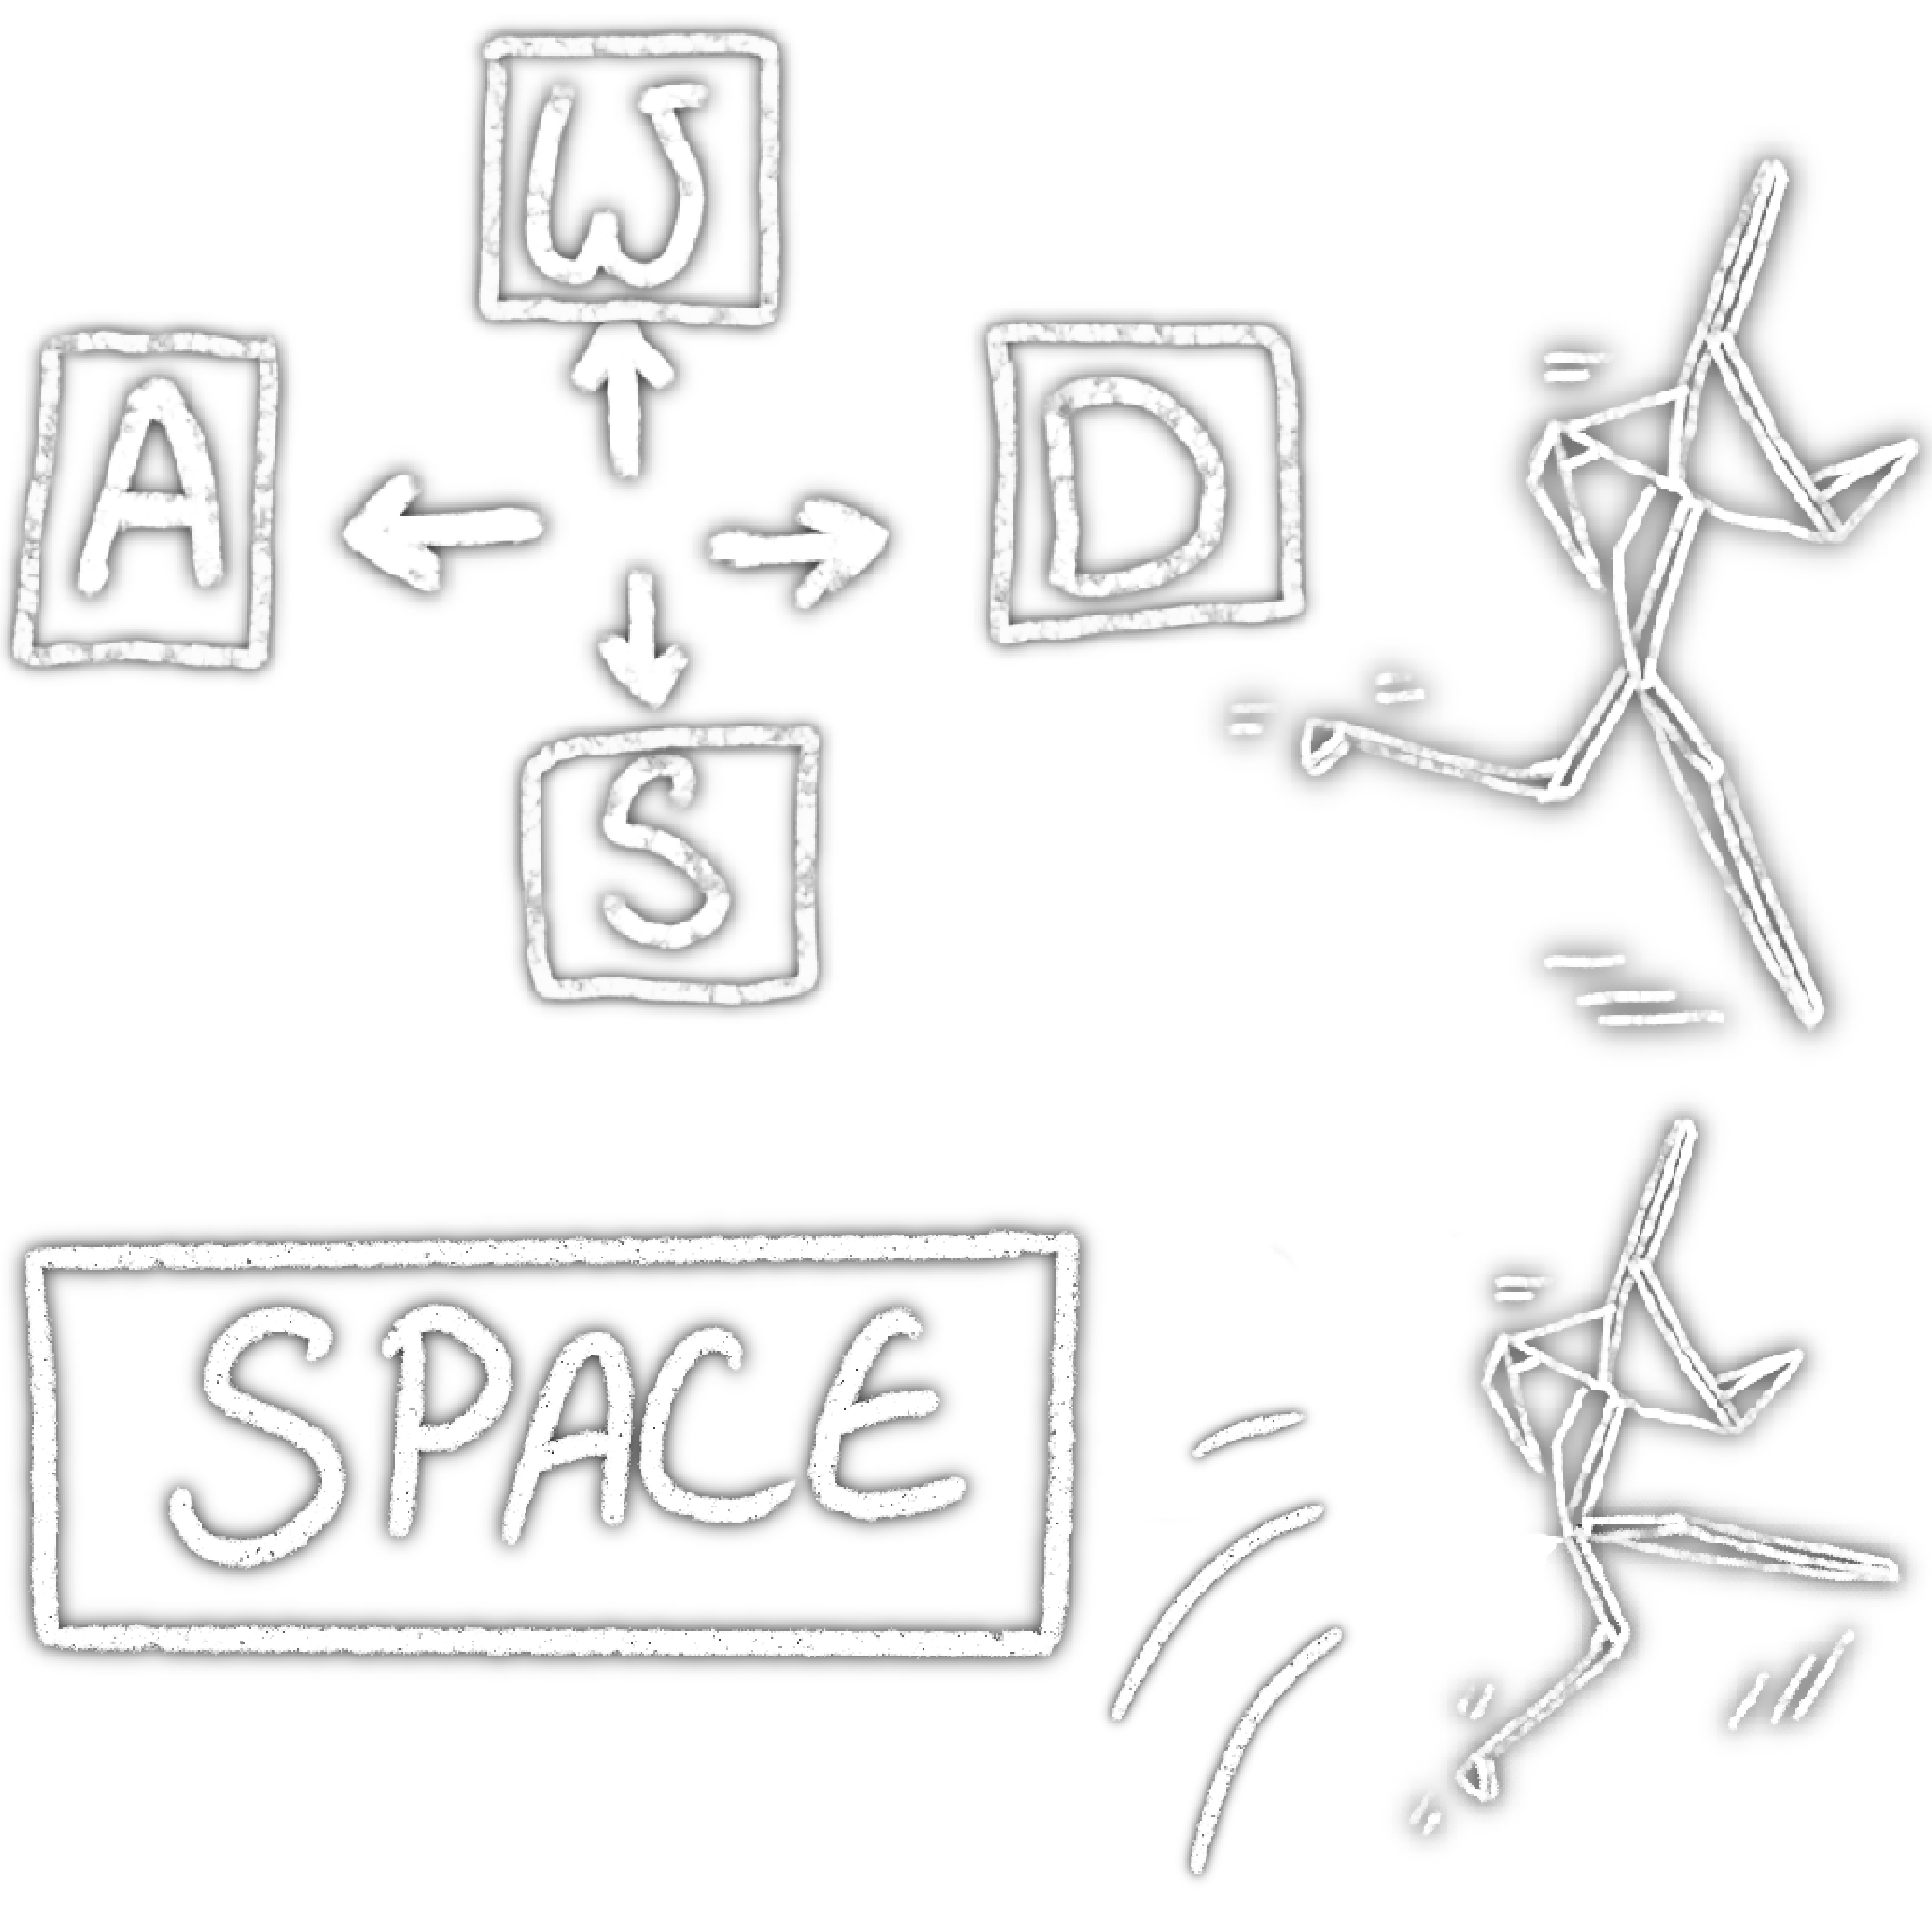 W
A D
S
SPACE